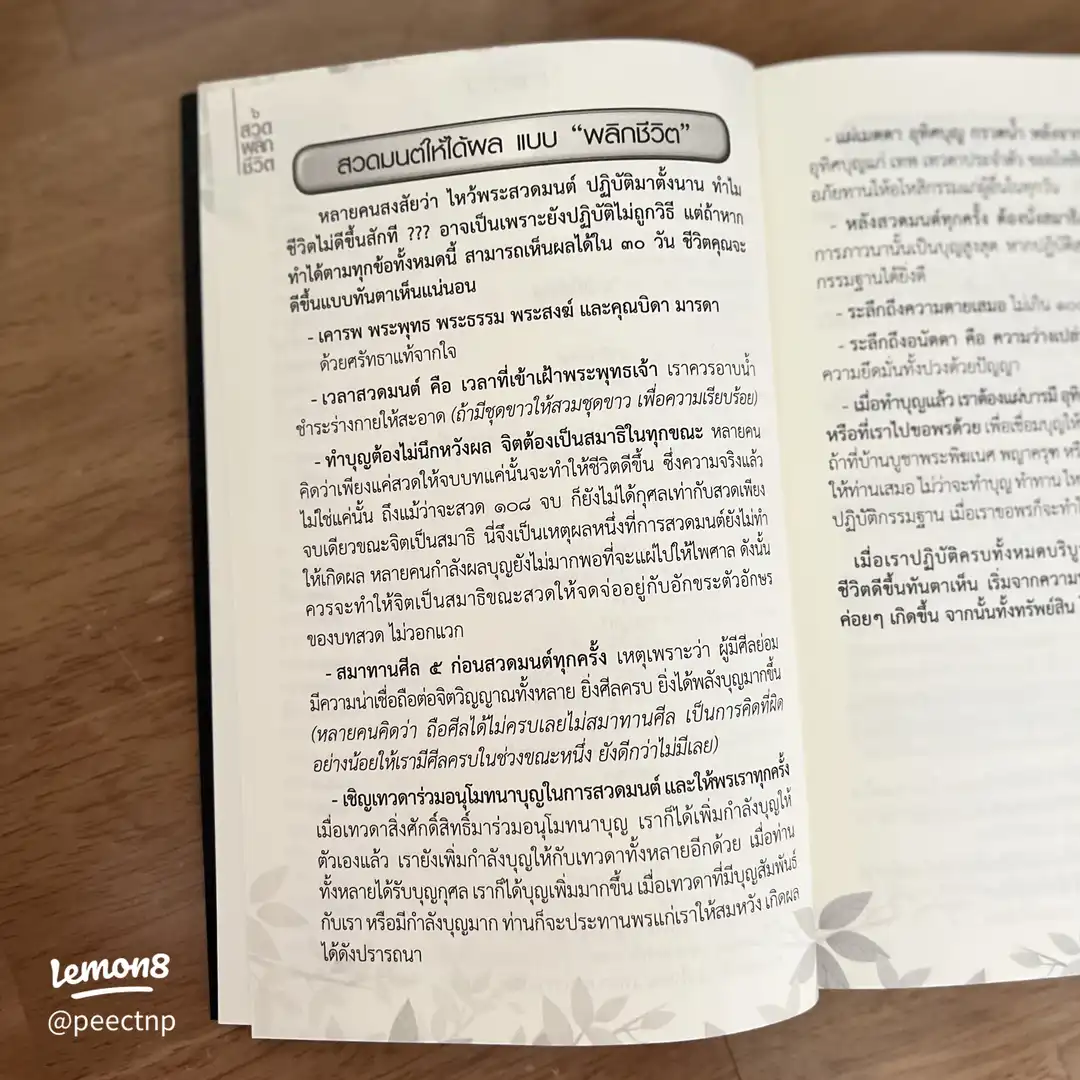 ๖
สวด
พลิก
ชีวิต
สวดมนต์ให้ได้ผล แบบ “พลิกชีวิต”
หลายคนสงสัยว่า ไหว้พระสวดมนต์ ปฏิบัติมาตั้งนาน ทำไม
ชีวิตไม่ดีขึ้นสักที ??? อาจเป็นเพราะยังปฏิบัติไม่ถูกวิธี แต่ถ้าหาก
ทำได้ตามทุกข้อทั้งหมดนี้ สามารถเห็นผลได้ใน ๓๐ วัน ชีวิตคุณจะ
ดีขึ้นแบบทันตาเห็นแน่นอน
- เคารพ พระพุทธ พระธรรม พระสงฆ์ และคุณบิดา มารดา
ด้วยศรัทธาแท้จากใจ
- เวลาสวดมนต์ คือ เวลาที่เข้าเฝ้าพระพุทธเจ้า เราควรอาบน้ำ
ชำระร่างกายให้สะอาด (ถ้ามีชุดขาวให้สวมชุดขาว เพื่อความเรียบร้อย)
- ทำบุญต้องไม่นึกหวังผล จิตต้องเป็นสมาธิในทุกขณะ หลายคน
คิดว่าเพียงแค่สวดให้จบบทแค่นั้นจะทำให้ชีวิตดีขึ้น ซึ่งความจริงแล้ว
ไม่ใช่แค่นั้น ถึงแม้ว่าจะสวด ๑๐๘ จบ ก็ยังไม่ได้กุศลเท่ากับสวดเพียง
จบเดียวขณะจิตเป็นสมาธิ นี่จึงเป็นเหตุผลหนึ่งที่การสวดมนต์ยังไม่ทำ
ให้เกิดผล หลายคนกำลังผลบุญยังไม่มากพอที่จะแผ่ไปให้ไพศาล ดังนั้น
ควรจะทำให้จิตเป็นสมาธิขณะสวดให้จดจ่ออยู่กับอักขระตัวอักษร
ของบทสวด ไม่วอกแวก
- สมาทานศีล ๕ ก่อนสวดมนต์ทุกครั้ง เหตุเพราะว่า ผู้มีศีลย่อม
มีความน่าเชื่อถือต่อจิตวิญญาณทั้งหลาย ยิ่งศีลครบ ยิ่งได้พลังบุญมากขึ้น
(หลายคนคิดว่า ถือศีลได้ไม่ครบเลยไม่สมาทานศีล เป็นการคิดที่ผิด
อย่างน้อยให้เรามีศีลครบในช่วงขณะหนึ่ง ยังดีกว่าไม่มีเลย)
- เชิญเทวดาร่วมอนุโมทนาบุญในการสวดมนต์ และให้พรเราทุกครั้ง
เมื่อเทวดาสิ่งศักดิ์สิทธิ์มาร่วมอนุโมทนาบุญ เราก็ได้เพิ่มกำลังบุญให้
ตัวเองแล้ว เรายังเพิ่มกำลังบุญให้กับเทวดาทั้งหลายอีกด้วย เมื่อท่าน
ทั้งหลายได้รับบุญกุศล เราก็ได้บุญเพิ่มมากขึ้น เมื่อเทวดาที่มีบุญสัมพันธ์
กับเรา หรือมีกำลังบุญมาก ท่านก็จะประทานพรแก่เราให้สมหวัง เกิดผล
ได้ดังปรารถนา
- แผ่เมตตา อุทิศบุญ กรวดน้ำ
อุทิศบุญแก่ เทพ เทวดาประจำตัว
อภัยทานให้อโหสิกรรมแก่ผู้อื่นในทุกวัน
- หลังสวดมนต์ทุกครั้ง ต้องนั่งสมาธิ
การภาวนานั้นเป็นบุญสูงสุด หากปฏิบัติ
กรรมฐานได้ยิ่งดี
- ระลึกถึงความตายเสมอ ไม่เกิน
- ระลึกถึงอนัตตา คือ ความว่างเปล่า
ความยึดมั่นทั้งปวงด้วยปัญญา
- เมื่อทำบุญแล้ว เราต้องแผ่บารมี
หรือที่เราไปขอพรด้วย เพื่อเชื่อมบุญให้
ถ้าที่บ้านบูชาพระพิฆเนศ พญาครุฑ
ให้ท่านเสมอ ไม่ว่าจะทำบุญ ทำทาน
ปฏิบัติกรรมฐาน เมื่อเราขอพรก็จะทำ
เมื่อเราปฏิบัติครบทั้งหมด
ชีวิตดีขึ้นทันตาเห็น เริ่มจากความ
ค่อยๆ เกิดขึ้น จากนั้นทั้งทรัพย์สิน
Lemon8
@peectnp